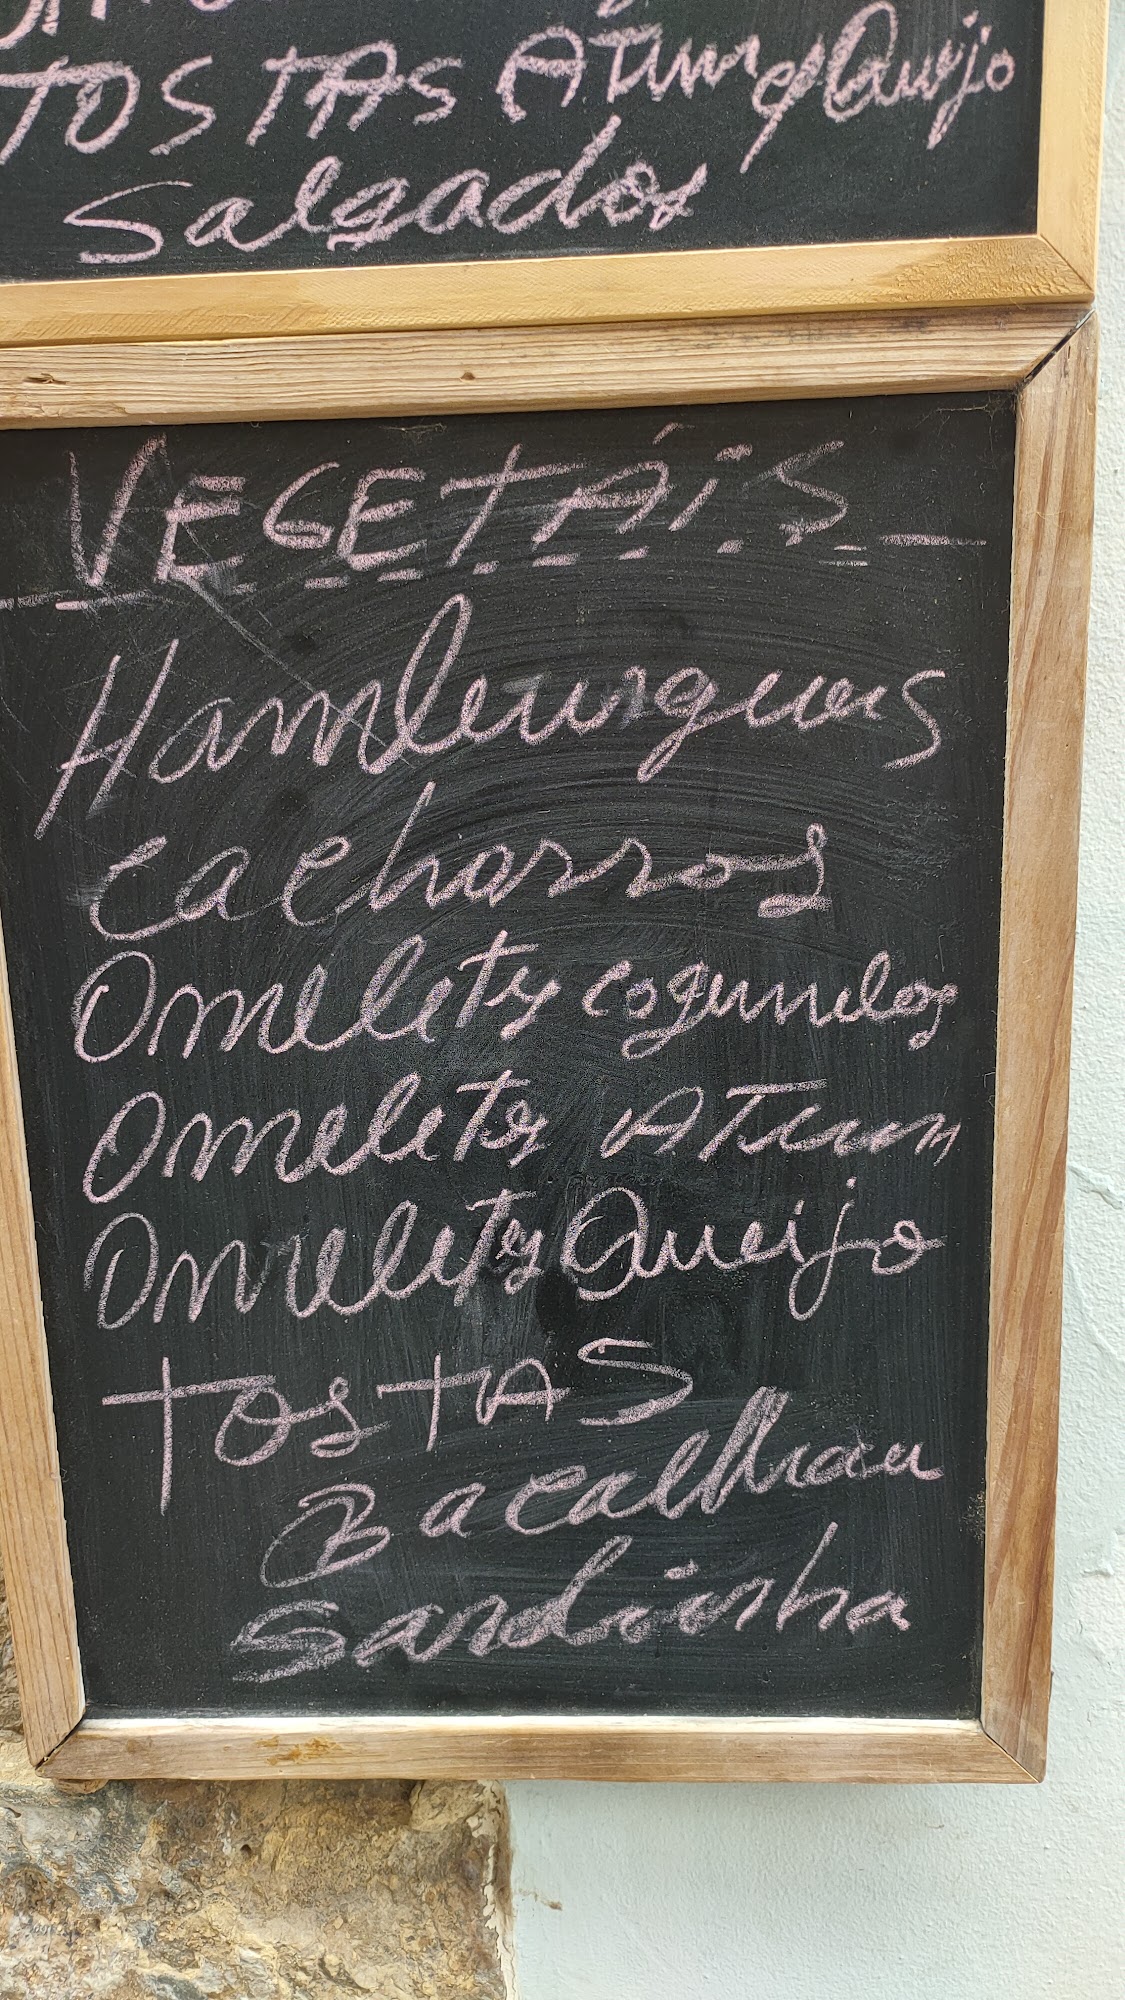 TOSTAS ATUM e Queijo
Salgados
VEGETAIS
Hamburgueres
cachorros
Omeletes cogumelos
Omeletes ATum
Omeletes Queijo
TOSTAS
Bacalhau
Sardinha